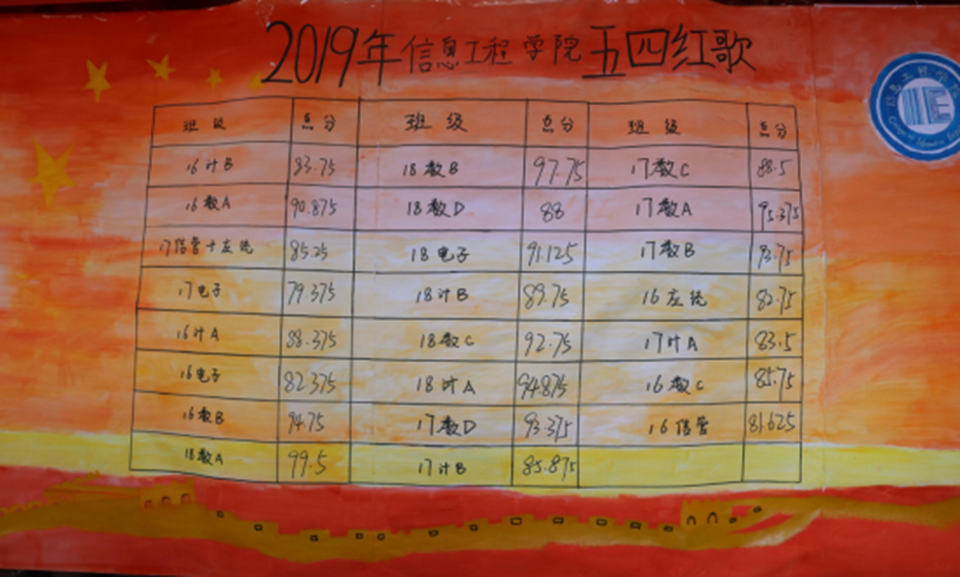 2019年信息工程学院五四红歌
班级 总分 班级 总分 班级 总分
16计B 83.75 18数B 97.75 17数C 88.5
16数A 90.875 18数D 88 17数A 95.375
17信管+应统 85.25 18电子 91.125 17数B 93.75
17电子 79.375 18计B 89.75 16应统 82.75
16计A 88.375 18数C 92.75 17计A 83.5
16电子 82.375 18计A 94.875 16数C 85.75
16数B 94.75 17数D 93.375 16信管 81.625
18数A 99.5 17计B 85.875
信息工程学院